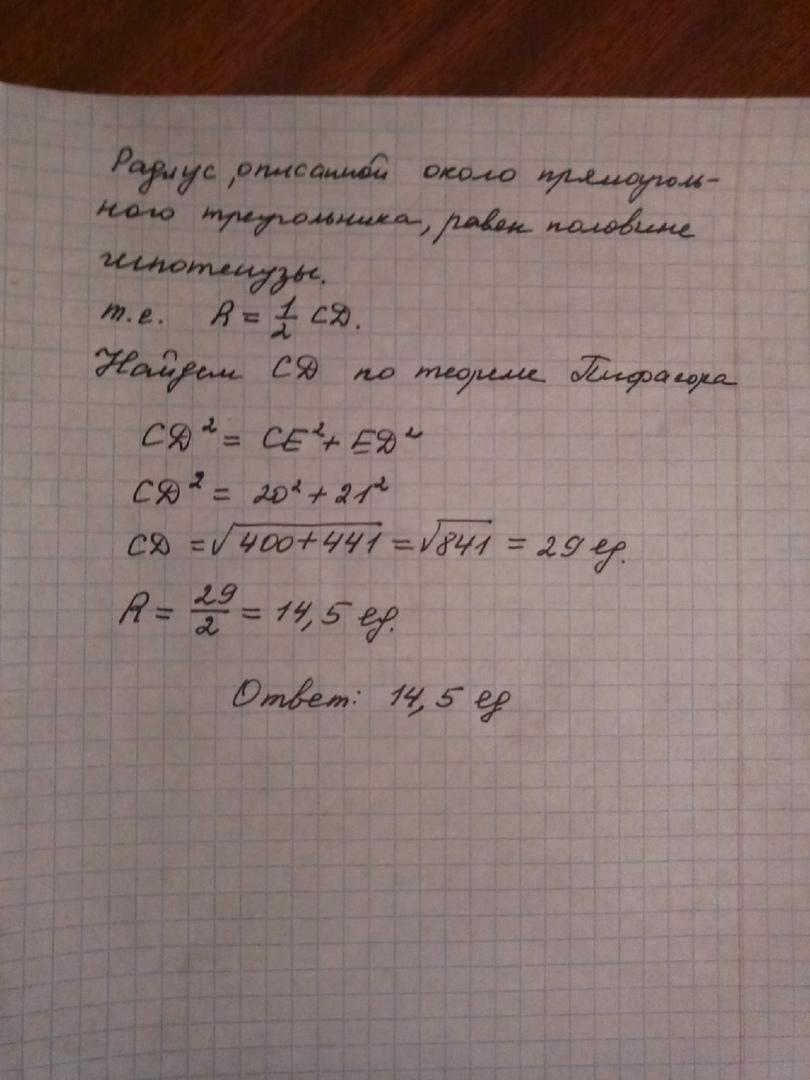 Радиус, описанной около прямоуголь-
ного треугольника, равен половине
гипотенузы.
т.е. R = 1/2 CD.
Найдем CD по теореме Пифагора
CD² = CE² + ED²
CD² = 20² + 21²
CD = √400+441 = √841 = 29 ед.
R = 29/2 = 14,5 ед.
Ответ: 14,5 ед